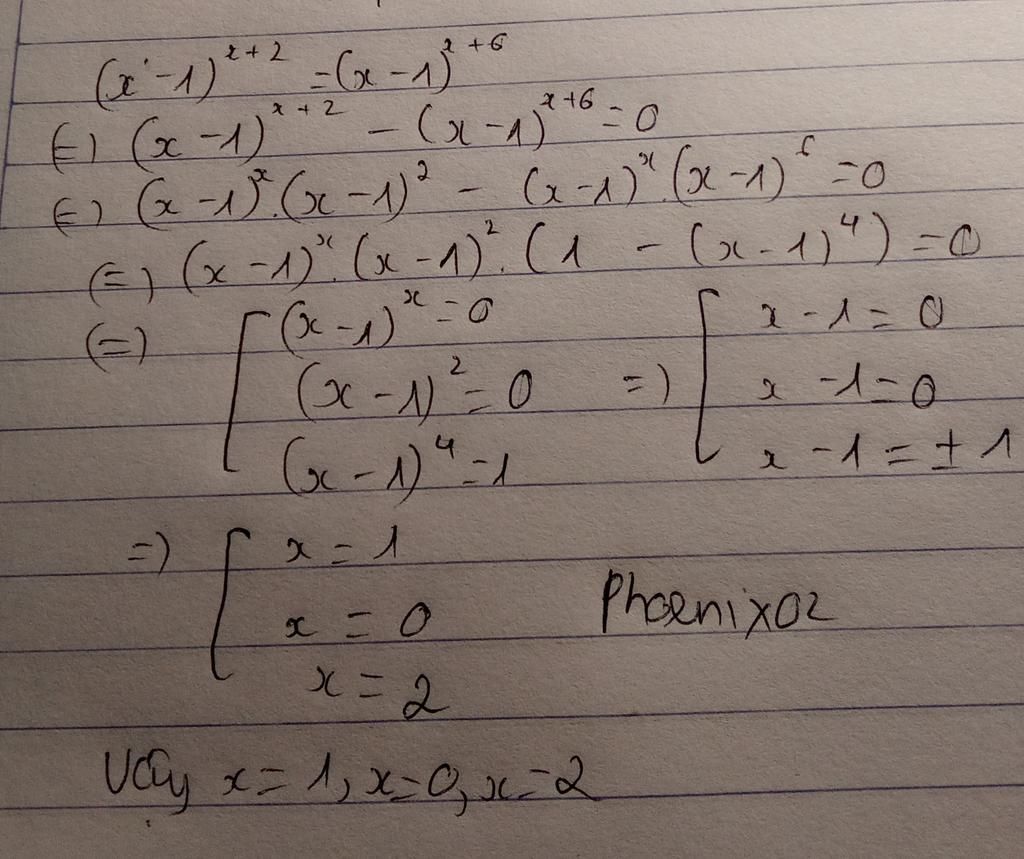 (x-1)^{x+2} =(x-1)^{x+6}
(=) (x-1)^{x+2} - (x-1)^{x+6} =0
(=) (x-1)^x.(x-1)^2 - (x-1)^x.(x-1)^6 =0
(=) (x-1)^x.(x-1)^2.(1 - (x-1)^4) =0
(=) [ (x-1)^x =0 [ x-1=0
(x-1)^2 =0 =) x-1=0
(x-1)^4 =1 x-1=±1
=) [ x=1
x=0 Phoenix02
x=2
Vậy x=1, x=0, x=2